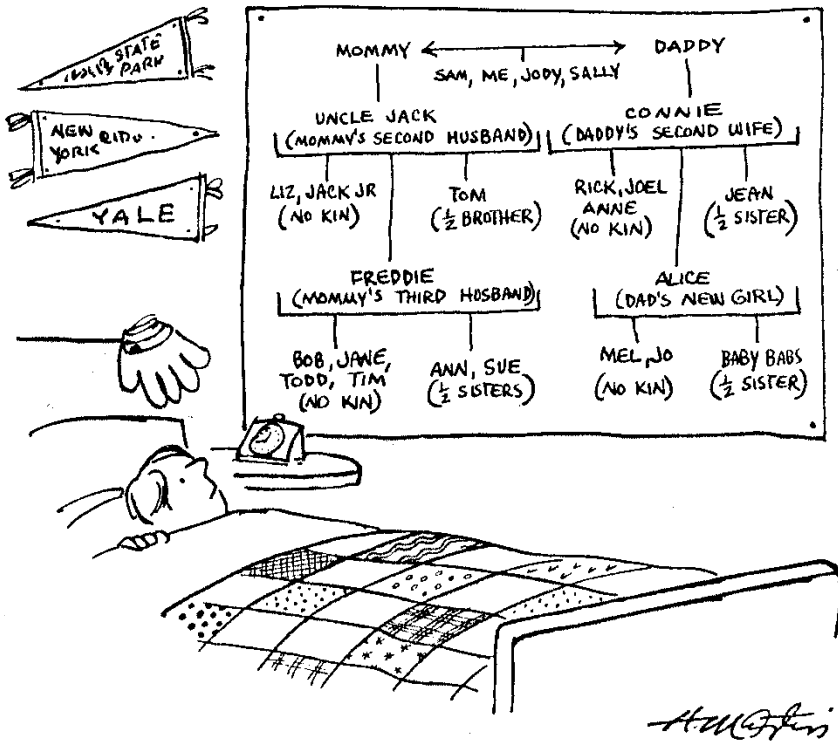 STATE
PARK
NEW
YORK
YALE
MOMMY
DADDY
SAM, ME, JODY, SALLY
UNCLE JACK
(MOMMY'S SECOND HUSBAND)
CONNIE
(DADDY'S SECOND WIFE)
LIZ, JACK JR
(NO KIN)
TOM
(½ BROTHER)
RICK, JOEL
ANNE
(NO KIN)
JEAN
(½ SISTER)
FREDDIE
(MOMMY'S THIRD HUSBAND)
ALICE
(DAD'S NEW GIRL)
BOB, JANE,
TODD, TIM
(NO KIN)
ANN, SUE
(½ SISTERS)
MEL, JO
(NO KIN)
BABY BABS
(½ SISTER)